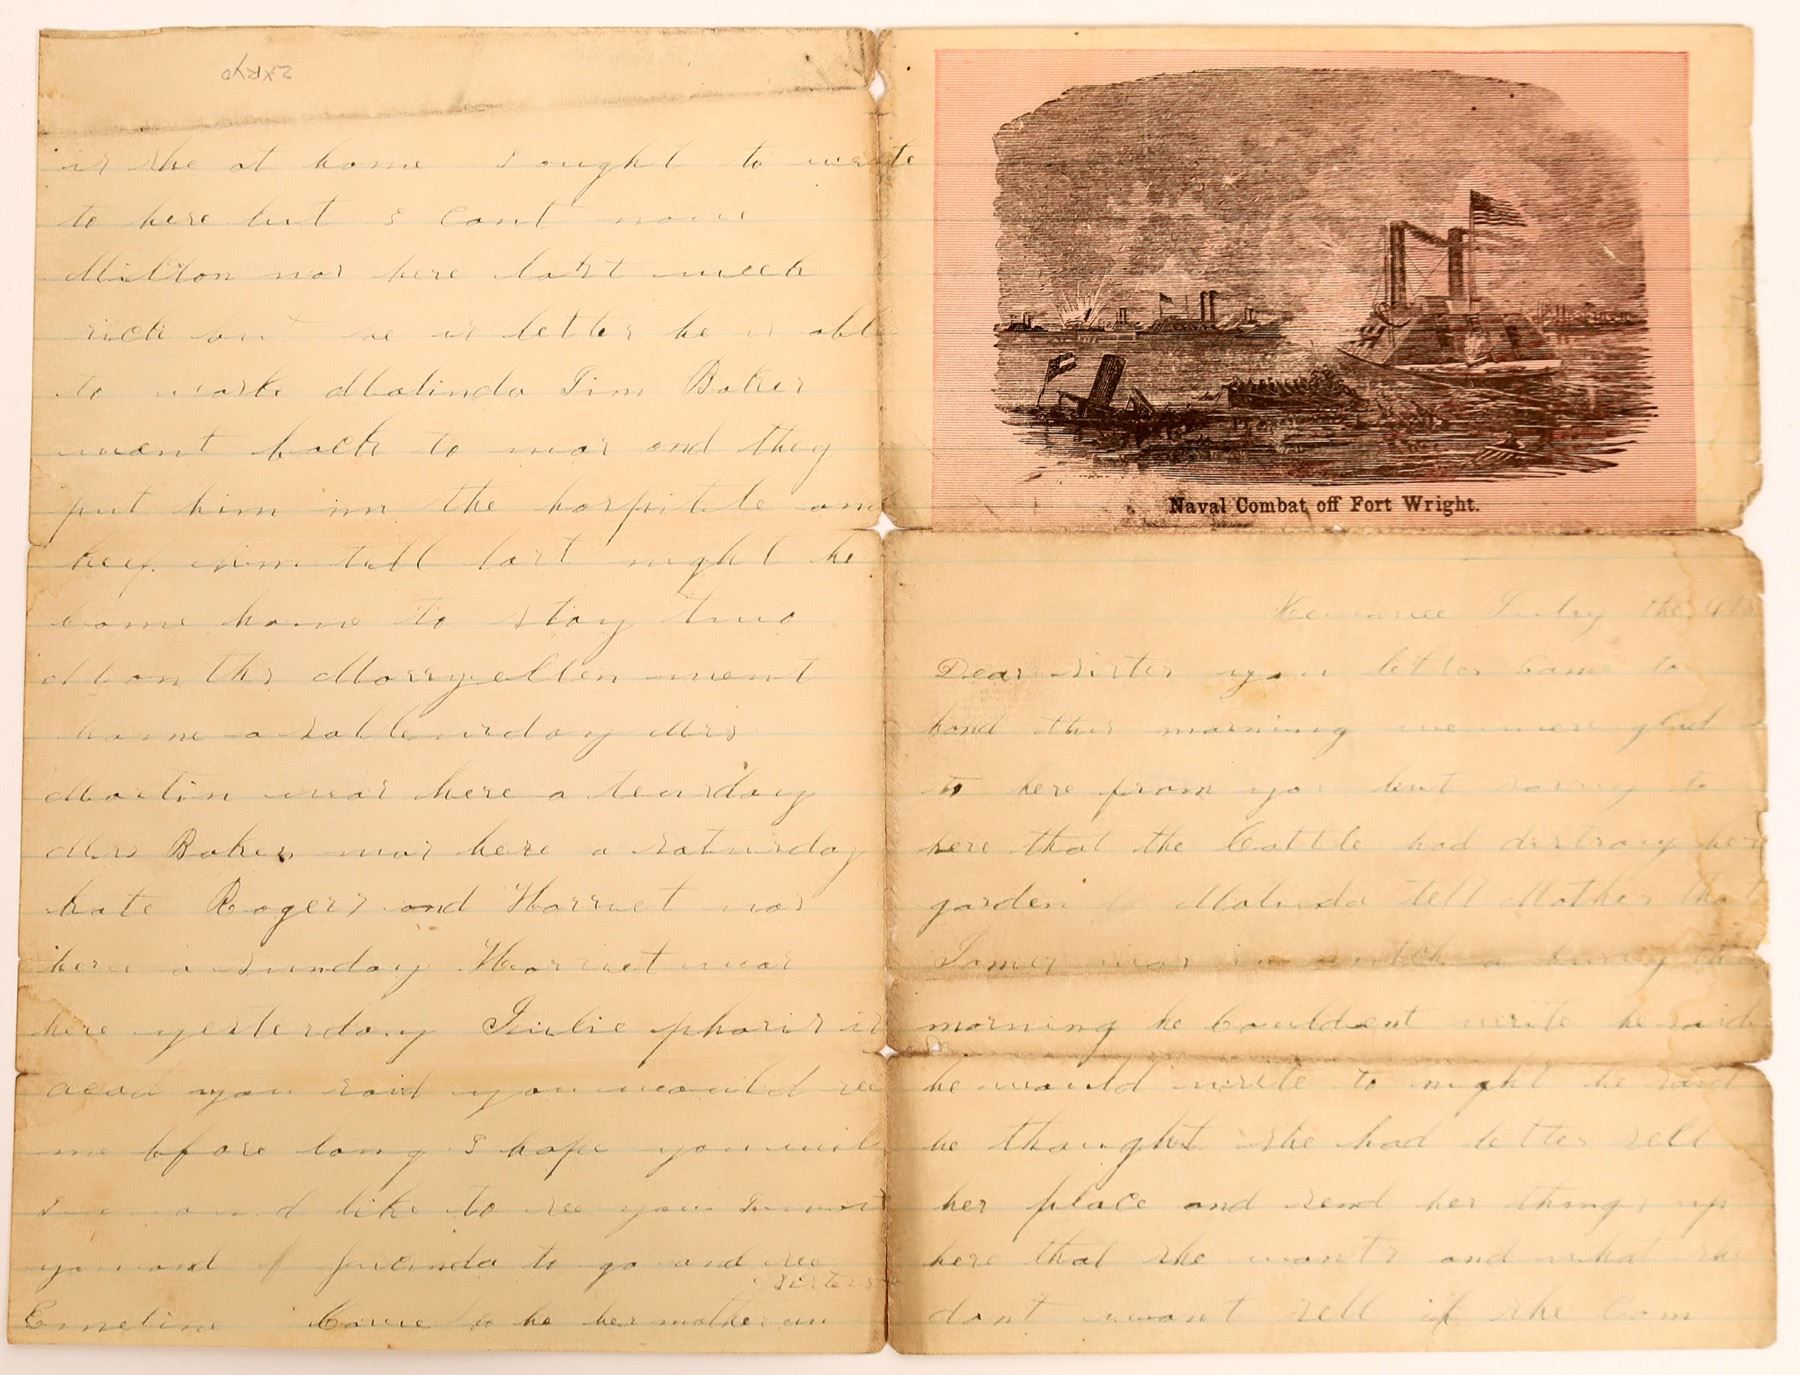 Naval Combat off Fort Wright.
Kewanee July the
Dear sister you letter came to
hand this morning we were glad
to here from you but sorry to
here that the Cattle had distrouy her
garden Malinda tell Mother that
James was in such a hurry this
morning he Couldent write he said
he would write to night he said
he thought she had better sell
her place and send her things up
here that she wants and what she
dont want sell if she Com
is she at home I ought to write
to here but I cant now
Milton was here last week
sick but he is better he is abl
to work Malinda Tim Baker
went back to war and they
put him inn the hospitle and
keep him till last night he
come home to stay two
Months Marryellen went
home a satterday Mrs
Martin was here a teusday
Mrs Baker was here a saturday
kate Rogers and Harriet was
here a sunday Harriet was
here yesterday Julie pharis is
dead you said you would see
me bfore long I hope you will
I would like to see you I want
you and to go and see
sister
Emeline her mother